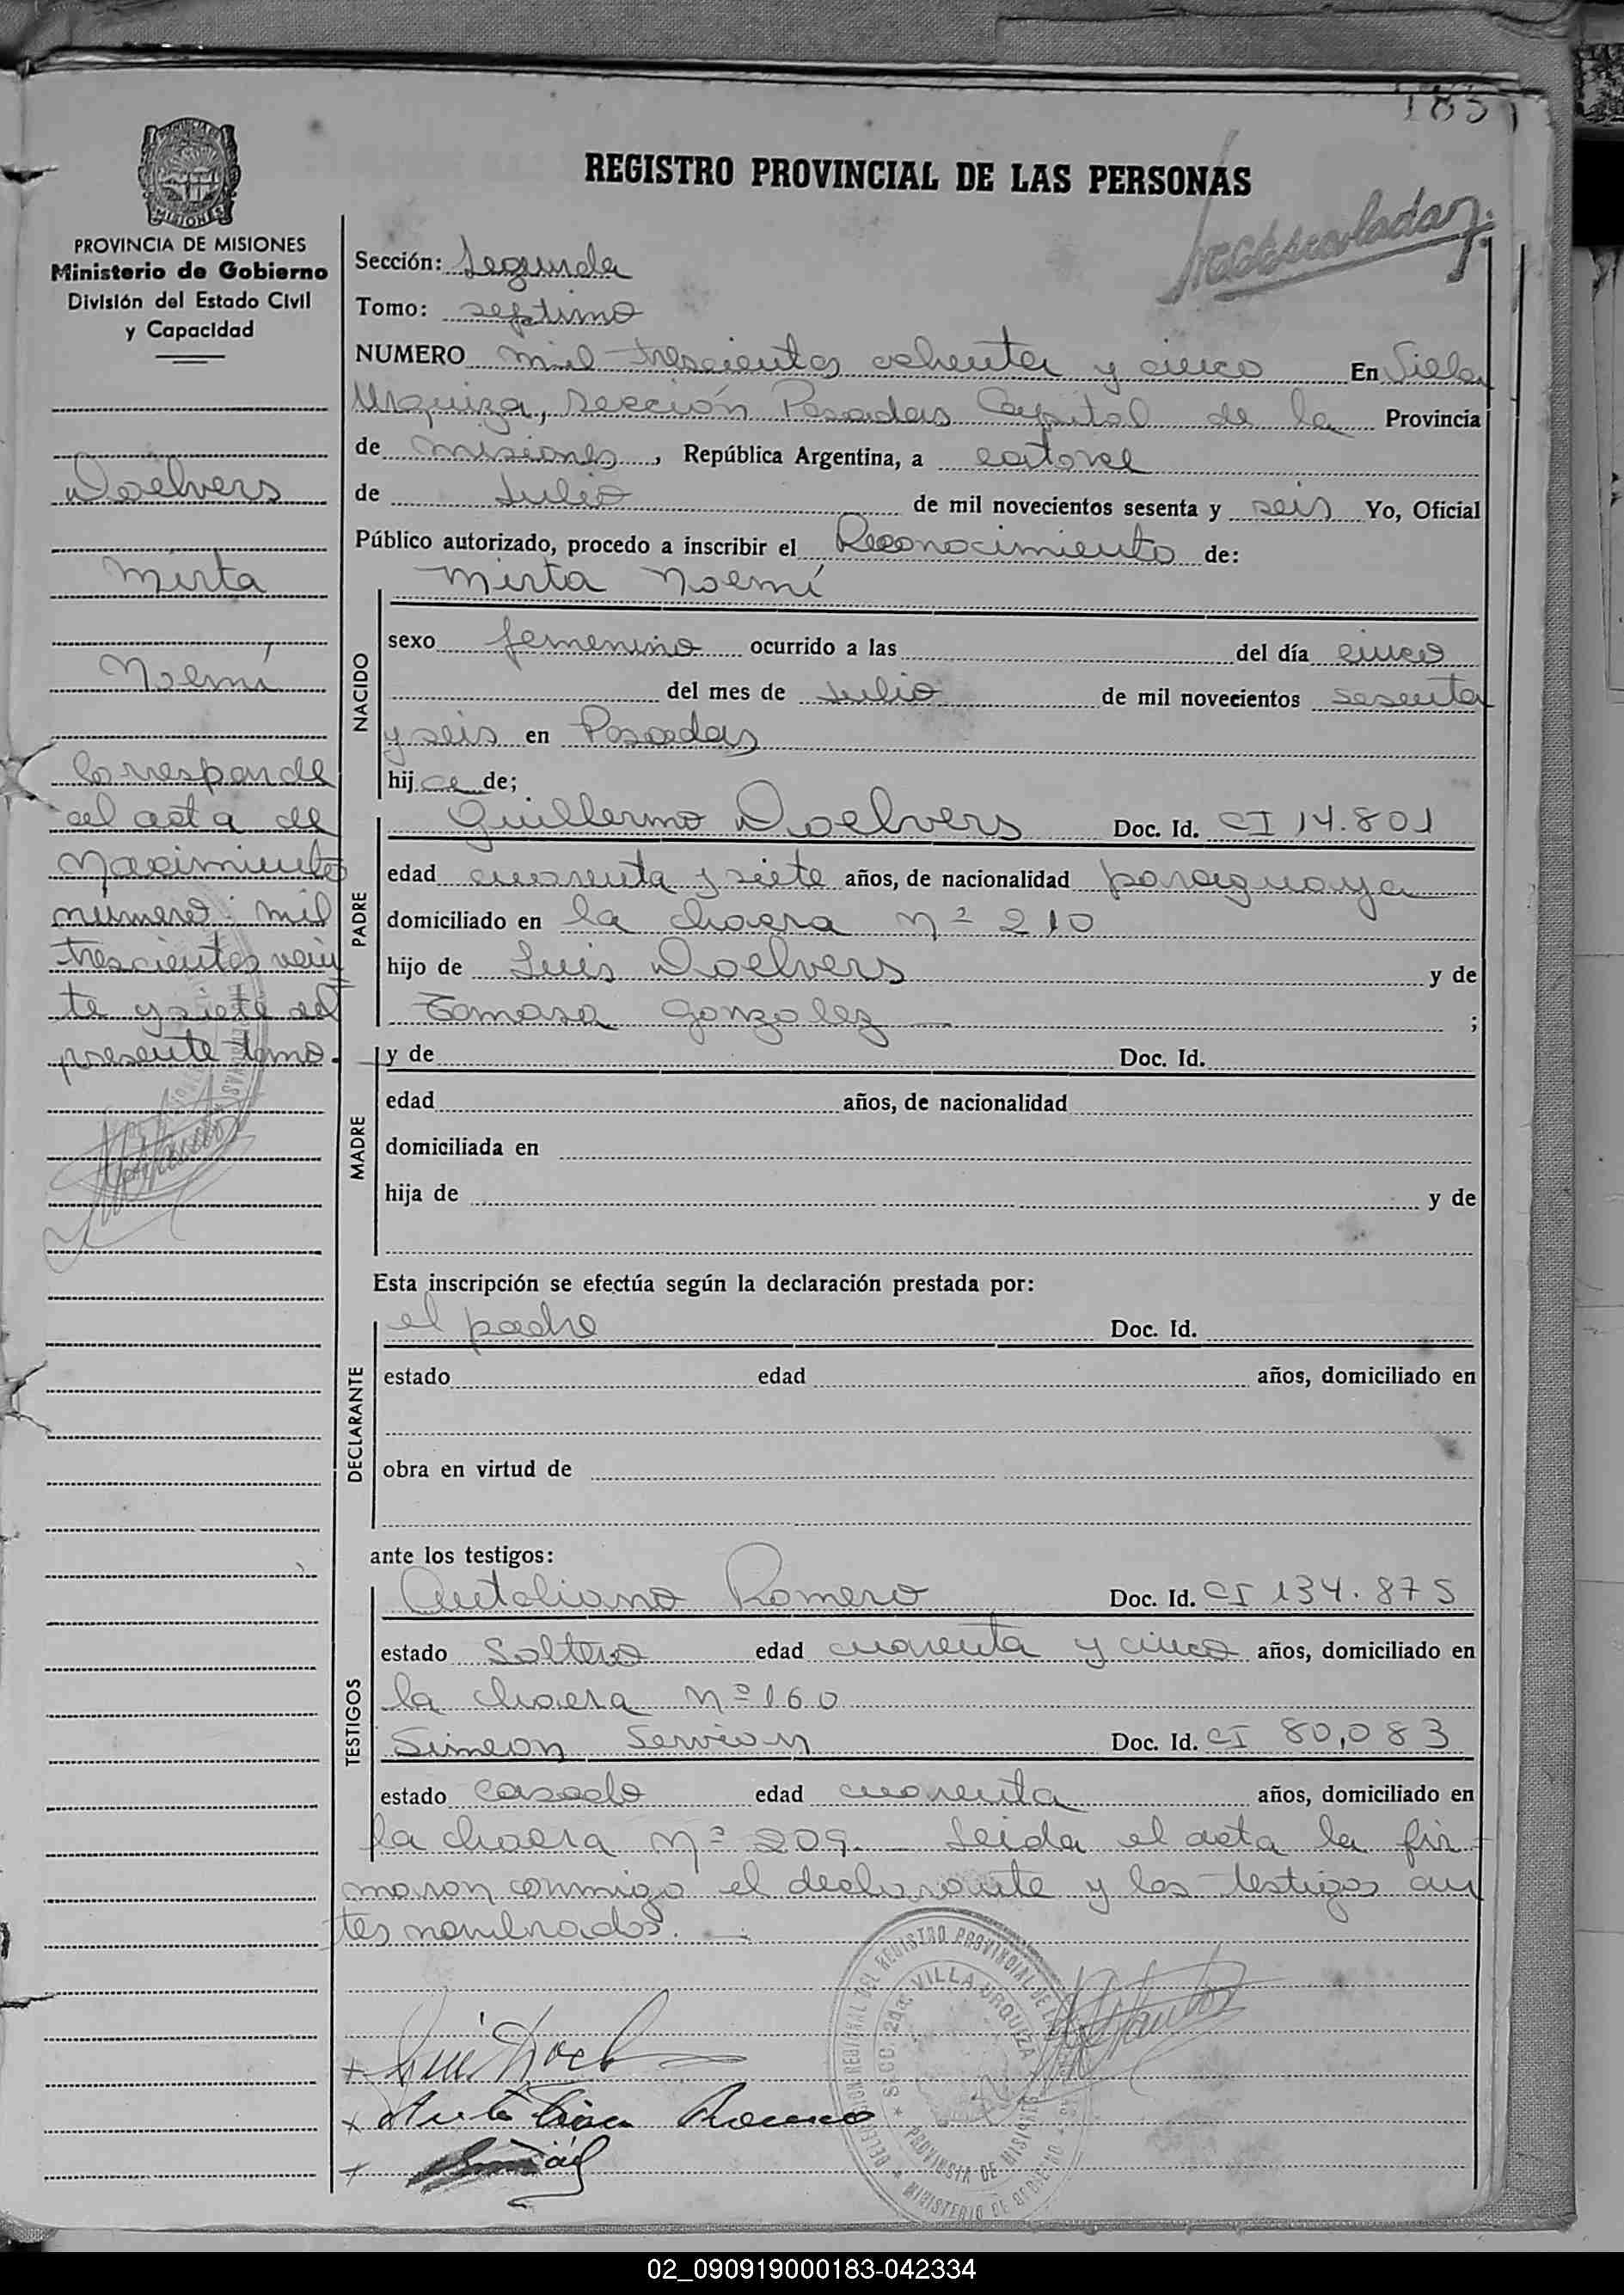 1385
REGISTRO PROVINCIAL DE LAS PERSONAS
PROVINCIA DE MISIONES
Ministerio de Gobierno
División del Estado Civil
y Capacidad
Doelvers
Mirta
Noemí
Corresponde
al acta de
Nacimiento
número: mil
trescientos vein
te y siete del
presente tomo.
Sección: Segunda
Tomo: septimo
NUMERO mil trescientos ochenta y cinco En Villa
Urquiza, sección Posadas Capital de la Provincia
de Misiones, República Argentina, a catorce
de Julio de mil novecientos sesenta y seis Yo, Oficial
Público autorizado, procedo a inscribir el Reconocimiento de:
NACIDO
Mirta Noemí
sexo femenino ocurrido a las del día cinco
del mes de Julio de mil novecientos sesenta
y seis en Posadas
hija de;
PADRE
Guillermo Doelvers Doc. Id. CI 14.801
edad cuarenta y siete años, de nacionalidad paraguaya
domiciliado en la chacra Nº 210
hijo de Luis Doelvers y de
Tomasa Gonzalez ;
MADRE
y de Doc. Id.
edad años, de nacionalidad
domiciliada en
hija de y de
Esta inscripción se efectúa según la declaración prestada por:
DECLARANTE
el padre Doc. Id.
estado edad años, domiciliado en
obra en virtud de
ante los testigos:
TESTIGOS
Autaliano Romero Doc. Id. CI 134.875
estado Soltero edad cuarenta y cinco años, domiciliado en
la chacra Nº 160
Simeon Servion Doc. Id. CI 80,083
estado casado edad cuarenta años, domiciliado en
la chacra Nº 209. Leida el acta la fir-
maron conmigo el declarante y los testigos an
tes nombrados.
DELEGACION REGIONAL DEL REGISTRO PROVINCIAL DE LAS
SECC. 2da. VILLA URQUIZA
PROVINCIA DE MISIONES
MINISTERIO DE GOBIERNO
Romero
02_090919000183-042334